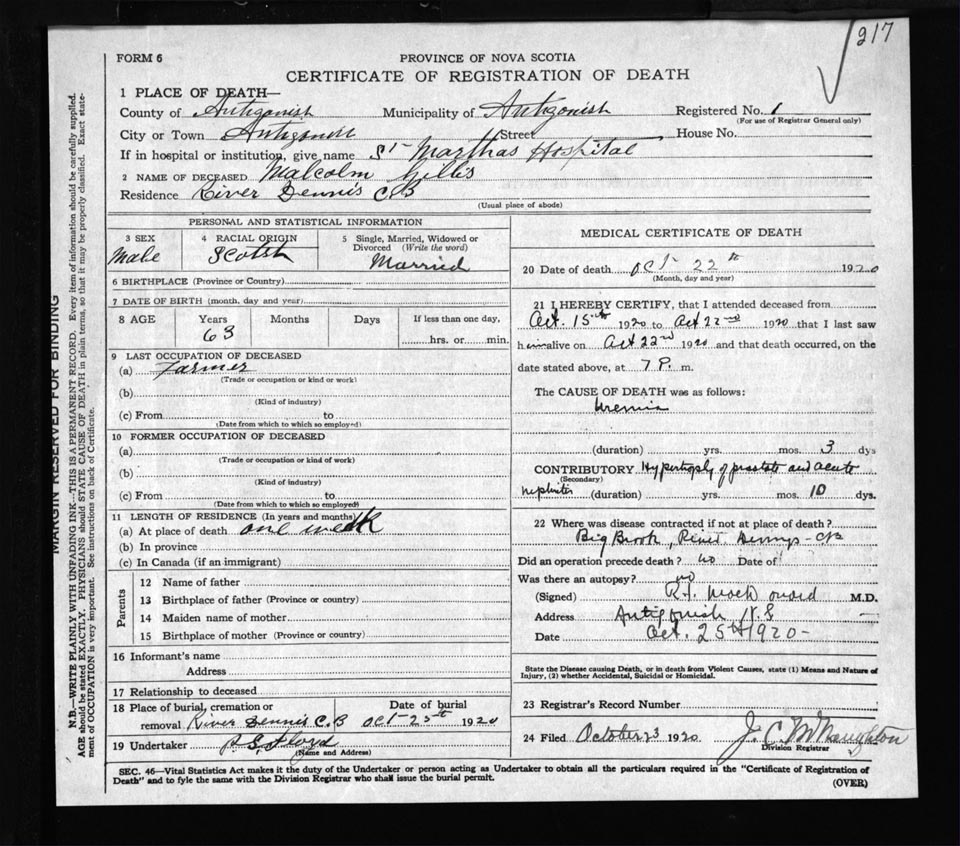 217
FORM 6
PROVINCE OF NOVA SCOTIA
CERTIFICATE OF REGISTRATION OF DEATH
1 PLACE OF DEATH—
County of Antigonish Municipality of Antigonish Registered No. 1
(For use of Registrar General only)
City or Town Antigonish Street House No.
If in hospital or institution, give name St Marthas Hospital
2 NAME OF DECEASED Malcolm Gillis
Residence River Dennis C.B
(Usual place of abode)
PERSONAL AND STATISTICAL INFORMATION
3 SEX Male
4 RACIAL ORIGIN Scotsh
5 Single, Married, Widowed or Divorced (Write the word) Married
6 BIRTHPLACE (Province or Country)
7 DATE OF BIRTH (month, day and year)
8 AGE Years Months Days If less than one day,
63 hrs. or min.
9 LAST OCCUPATION OF DECEASED
(a) Farmer
(Trade or occupation or kind or work)
(b)
(Kind of industry)
(c) From to
(Date from which to which so employed)
10 FORMER OCCUPATION OF DECEASED
(a)
(Trade or occupation or kind of work)
(b)
(Kind of industry)
(c) From to
(Date from which to which so employed)
11 LENGTH OF RESIDENCE (In years and months)
(a) At place of death one week
(b) In province
(c) In Canada (if an immigrant)
Parents
12 Name of father
13 Birthplace of father (Province or country)
14 Maiden name of mother
15 Birthplace of mother (Province or country)
16 Informant's name
Address
17 Relationship to deceased
18 Place of burial, cremation or Date of burial
removal River Dennis C.B Oct 25th 1920
19 Undertaker P.S. Floyd
(Name and Address)
MEDICAL CERTIFICATE OF DEATH
20 Date of death Oct 22th 1920
(Month, day and year)
21 I HEREBY CERTIFY, that I attended deceased from
Oct. 15th 1920 to Oct 22nd 1920 that I last saw
him alive on Oct 22nd 1920 and that death occurred, on the
date stated above, at 7 P. m.
The CAUSE OF DEATH was as follows:
Uremia
(duration) yrs. mos. 3 dys
CONTRIBUTORY Hypertrophy of prostate and acute
(Secondary)
nephritis (duration) yrs. mos. 10 dys.
22 Where was disease contracted if not at place of death?
Big Brook, River Dennys - CB
Did an operation precede death? no Date of
Was there an autopsy? no
(Signed) M.D.
Address Antigonish N.S
Date Oct. 25th 1920-
State the Disease causing Death, or in death from Violent Causes, state (1) Means and Nature of
Injury, (2) whether Accidental, Suicidal or Homicidal.
23 Registrar's Record Number
24 Filed October 23 1920 J. C. McNaughton
Division Registrar
SEC. 46—Vital Statistics Act makes it the duty of the Undertaker or person acting as Undertaker to obtain all the particulars required in the "Certificate of Registration of
Death" and to fyle the same with the Division Registrar who shall issue the burial permit.
(OVER)
MARGIN RESERVED FOR BINDING
N.B.—WRITE PLAINLY WITH UNFADING INK—THIS IS A PERMANENT RECORD. Every item of information should be carefully supplied.
AGE should be stated EXACTLY. PHYSICIANS should STATE CAUSE OF DEATH in plain terms, so that it may be properly classified. Exact state-
ment of OCCUPATION is very important. See instructions on back of Certificate.